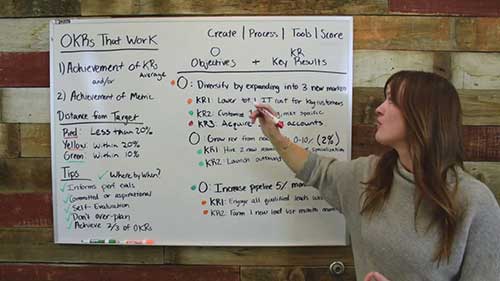 OKRs That Work
Create | Process | Tools | Score
O KR
Objectives + Key Results
1) Achievement of KRs
Average
and/or
2) Achievement of Metric
Distance from Target
Red: Less than 20%
Yellow: Within 20%
Green: Within 10%
Tips
Where by When?
Informs perf calls
Committed or aspirational
Self-Evaluation
Don't over-plan
Achieve 2/3 of OKRs
O: Diversify by expanding into 3 new markets
KR1: Lower IT cost for key customers
KR2: Customize specific
KR3: Acquire accounts
O: Grow rev from (2%)
KR1: Hire 2 new
KR2: Launch
O: Increase pipeline 5%
KR1: Engage all qualified leads
KR2: Farm 1 new lead